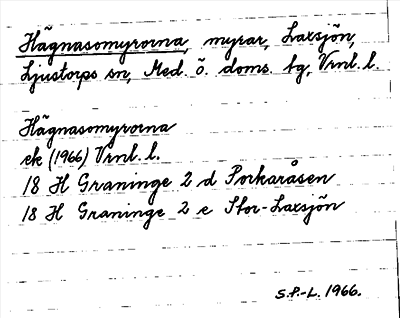 Hägnasomyrorna, myrar, Laxsjön,
Ljustorps sn, Med. ö. doms. tg, Vrnl. l.
Hägnasomyrorna
ek (1966) Vrnl. l.
18 H Graninge 2 d Porkaråsen
18 H Graninge 2 e Stor-Laxsjön
S.P.-L. 1966.